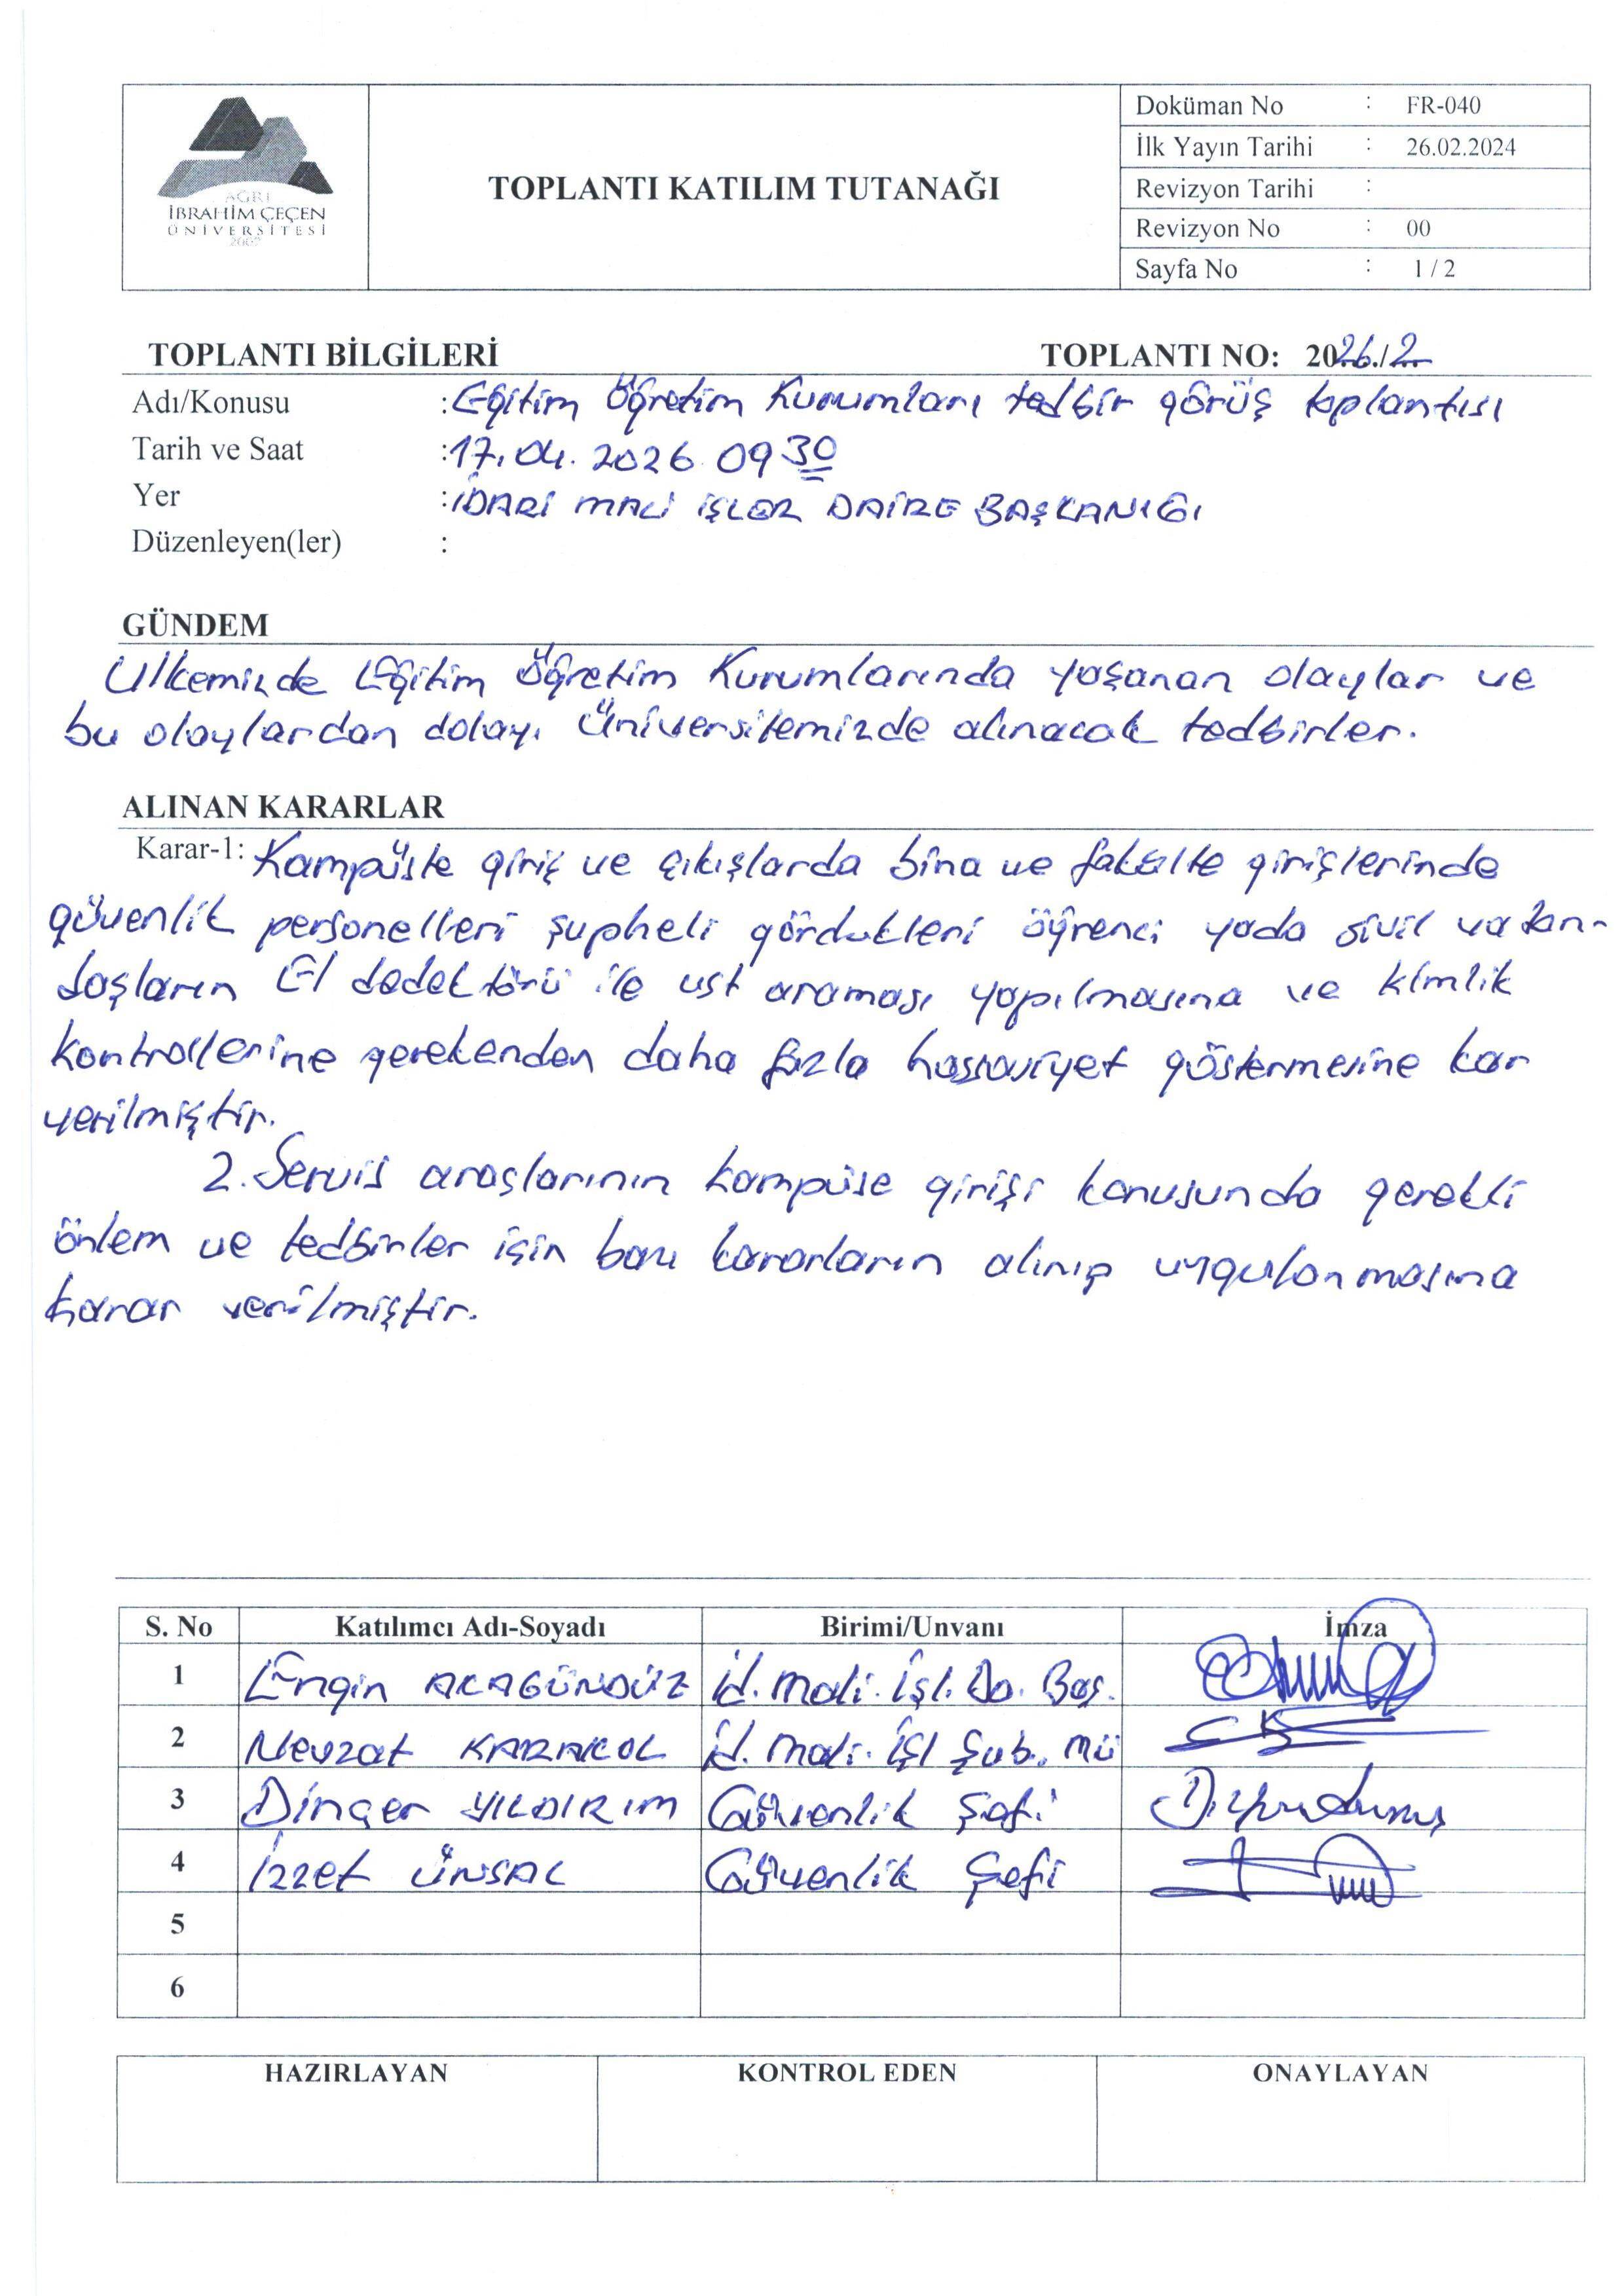 AĞRI
İBRAHİM ÇEÇEN
ÜNİVERSİTESİ
2007
TOPLANTI KATILIM TUTANAĞI
Doküman No : FR-040
İlk Yayın Tarihi : 26.02.2024
Revizyon Tarihi :
Revizyon No : 00
Sayfa No : 1 / 2
TOPLANTI BİLGİLERİ TOPLANTI NO: 2026./2
Adı/Konusu : Eğitim Öğretim Kurumları tedbir görüş toplantısı
Tarih ve Saat : 17.04.2026 09 30
Yer : İDARİ MALİ İŞLER DAİRE BAŞKANIĞI
Düzenleyen(ler) :
GÜNDEM
Ülkemizde Eğitim Öğretim Kurumlarında yaşanan olaylar ve
bu olaylardan dolayı Üniversitemizde alınacak tedbirler.
ALINAN KARARLAR
Karar-1: Kampüste giriş ve çıkışlarda bina ve fakülte girişlerinde
güvenlik personelleri şupheli gördükleri öğrenci yada sivil vatan-
daşların El dedektörü ile ust araması yapılmasına ve kimlik
kontrollerine gerekenden daha fazla hassasiyet göstermesine kar
verilmiştir.
2. Servis araçlarının kampüse girişi konusunda gerekli
önlem ve tedbirler için bazı kararların alınıp uygulanmasına
karar verilmiştir.
S. No Katılımcı Adı-Soyadı Birimi/Unvanı İmza
1 Engin AKAGÜNDÜZ İd. Mali. İşl. Da. Baş.
2 Nevzat KARAKOL İd. Mali. İşl Şub. Mü
3 Dinçer YILDIRIM Güvenlik Şefi
4 İzzet ÜNSAL Güvenlik Şefi
5
6
HAZIRLAYAN KONTROL EDEN ONAYLAYAN